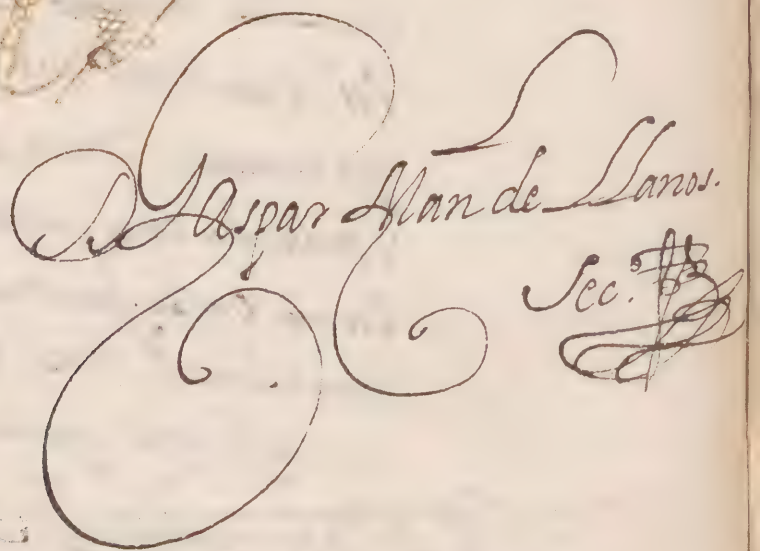 D. Gaspar Man de Llanos.
Sec.